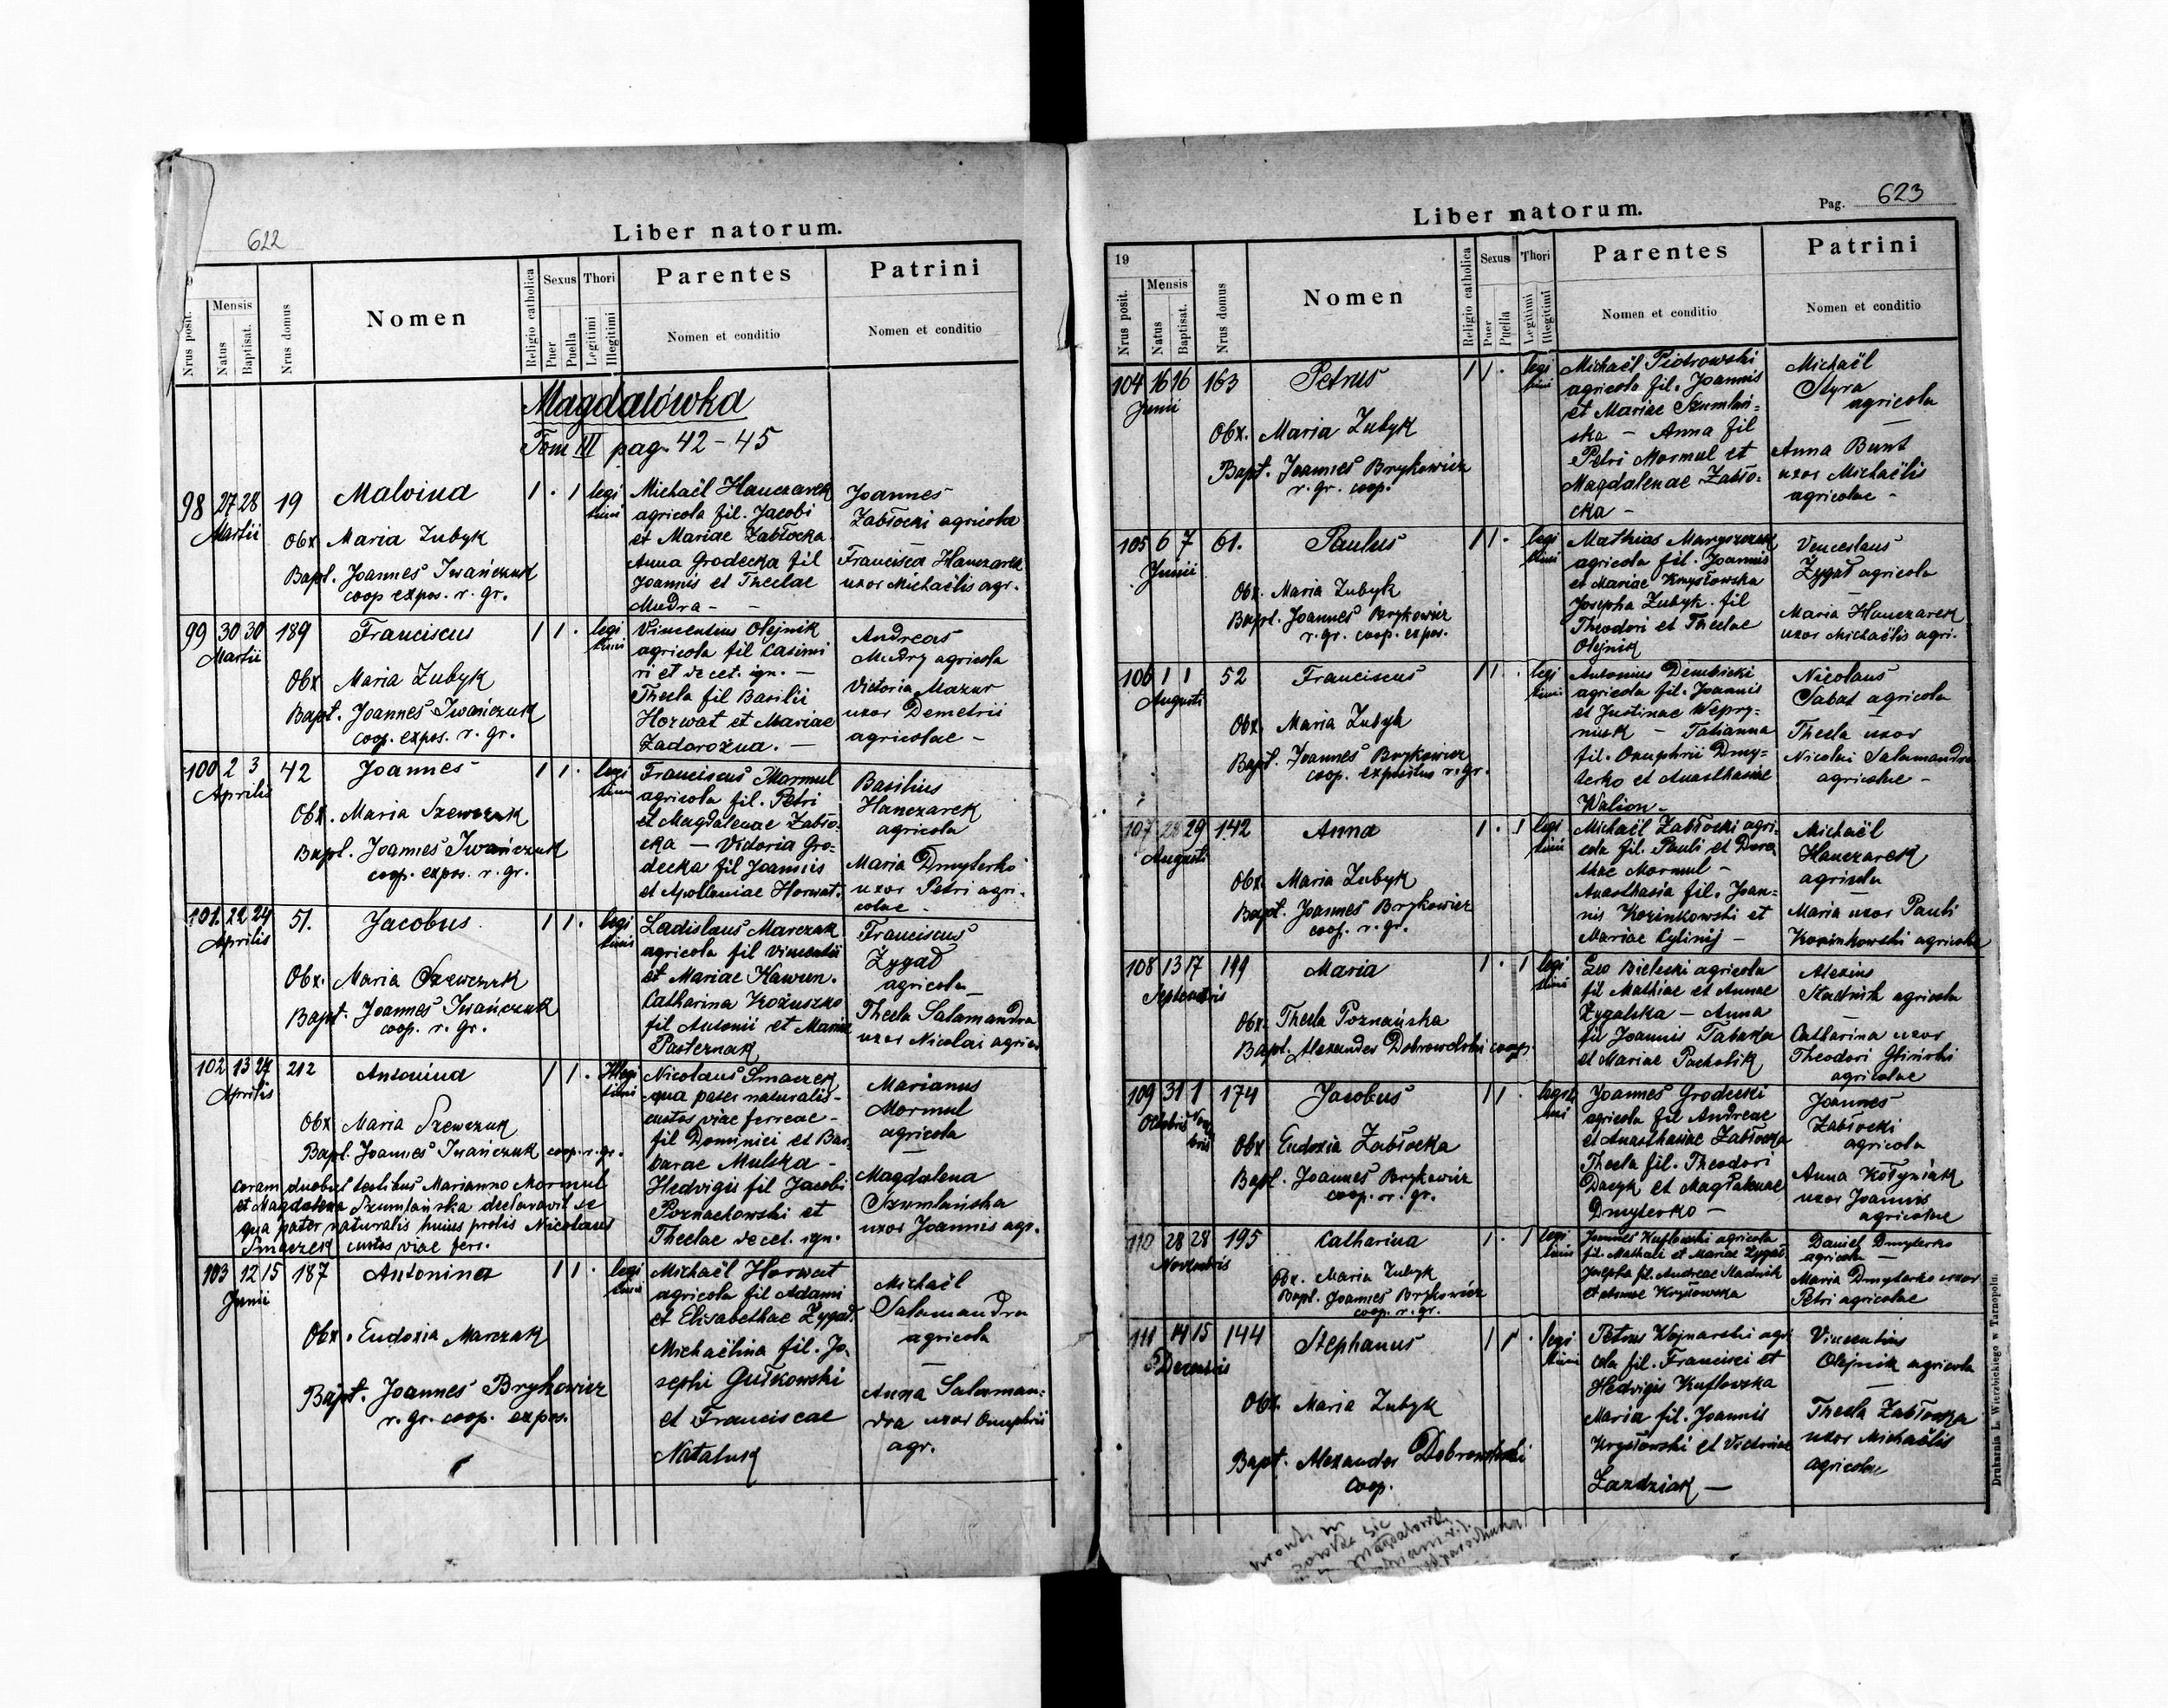 622
Liber natorum.
Nrus posit.
Mensis
Natus
Baptisat.
Nrus domus
Nomen
Religio catholica
Sexus
Puer
Puella
Thori
Legitimi
Illegitimi
Parentes
Nomen et conditio
Patrini
Nomen et conditio
Magdalówka
Tom III pag. 42 - 45
98 27 28 19 Malvina 1 . 1 legi Michaël Hanczarek Joannes
Martii timi agricola fil. Jacobi Zabłocki agricola
Obx Maria Zubyk et Mariae Zabłocka
Bapt. Joannes Iwańczuk Anna Grodecka fil Francisca Hanczarek
coop expos. r. gr. Joannis et Theclae uxor Michaëlis agr.
Mudra - -
99 30 30 189 Franciscus 1 1 . legi Vincentius Olejnik Andreas
Martii timi agricola fil Casimi Mudry agricola
Obx Maria Zubyk ri et de cet. ign. - Victoria Mazur
Bapt. Joannes Iwańczuk Thecla fil Basilii uxor Demetrii
coop. expos. r. gr. Horwat et Mariae agricolae -
Zadorożna. -
100 2 3 42 Joannes 1 1 . legi Franciscus Marmul Basilius
Aprilis timi agricola fil. Petri Hanczarek
Obx. Maria Szewczuk et Magdalenae Zabło- agricola
Bapt. Joannes Iwańczuk cka - Victoria Gro-
coop. expos. r. gr. decka fil Joannis Maria Dmyterko
et Apolloniae Horwat. uxor Petri agri-
colae -
101. 22 24 51. Jacobus 1 1 . legi Ladislaus Marczak Franciscus
Aprilis timi agricola fil Vincentii Zygad
Obx. Maria Szewczuk et Mariae Hawren. agricola
Bapt. Joannes Iwańczuk Catharina Kożuszko Thecla Salamandra
coop. r. gr. fil Antonii et Mariae uxor Nicolai agric.
Pasternak
102 13 27 212 Antonina 1 1 . Illegi Nicolaus Smaczek Marianus
Aprilis timi qua pater naturalis - Mormul
Obx Maria Szewczuk custos viae ferreae - agricola
Bapt. Joannes Iwańczuk coop. r. gr. fil Dominici et Bar-
coram duobus testibus Marianno Mormul barae Mulska - Magdalena
et Magdalena Szumlańska declaravit se Hedvigis fil Jacobi Szumlańska
qua pater naturalis huius prolis Nicolaus Poznachowski et uxor Joannis agr.
Smaczek custos viae ferr. Theclae de cet. ign.
103 12 15 187 Antonina 1 1 . legi Michaël Horwat Michaël
Junii timi agricola fil Adami Salamandra
et Elisabethae Zygad. agricola
Obx. Eudoxia Marczak Michaëlina fil. Jo-
Bapt. Joannes Brykowicz sephi Gutkowski Anna Salaman-
r. gr. coop. expos. et Franciscae dra uxor Onuphrii
Nataluk agr.
Pag. 623
Liber natorum.
19
Nrus posit.
Mensis
Natus
Baptisat.
Nrus domus
Nomen
Religio catholica
Sexus
Puer
Puella
Thori
Legitimi
Illegitimi
Parentes
Nomen et conditio
Patrini
Nomen et conditio
104 16 16 163 Petrus 1 1 . legi Michaël Piotrowski Michaël
Junii timi agricola fil. Joannis Styra
et Mariae Szumlań- agricola
Obx. Maria Zubyk ska - Anna fil
Bapt. Joannes Brykowicz Petri Mormul et Anna Bunt
r. gr. coop. Magdalenae Zabło- uxor Michaëlis
cka - agricolae -
105 6 7 61. Paulus 1 1 . legi Mathias Maryszczak Venceslaus
Junii timi agricola fil. Joannis Żygad agricola
Obx. Maria Zubyk et Mariae Krysłowska
Bapt. Joannes Brykowicz Josepha Zubyk. fil Maria Hanczarek
r. gr. coop. expos. Theodori et Theclae uxor Michaëlis agri.
Olejnik
106 1 1 52 Franciscus 1 1 . legi Antonius Dembicki Nicolaus
Augusti timi agricola fil. Joannis Sabat agricola
Obx. Maria Zubyk et Justinae Wepry-
Bapt. Joannes Brykowicz niuk - Tatianna Thecla uxor
coop. expositus r. gr. fil. Onuphrii Dmy- Nicolai Salamandra
terko et Anasthasiae agricolae -
Walion -
107 28 29 142 Anna 1 . 1 legi Michaël Zabłocki agri- Michaël
Augusti timi cola fil. Pauli et Doro- Hanczarek
Obx. Maria Zubyk thae Mormul - agricola
Bapt. Joannes Brykowicz Anasthasia fil. Joan-
coop. r. gr. nis Kozinkowski et Maria uxor Pauli
Mariae Cylinij - Kozinkowski agricola
108 13 17 199 Maria 1 . 1 legi Leo Bielecki agricola Alexius
Septembris timi fil Mathiae et Annae Stadnik agricola
Obx. Thecla Poznańska Zygalska - Anna
Bapt. Alexander Dobrowolski coop. fil Joannis Tabaka Catharina uxor
et Mariae Pacholik Theodori Gliński
agricolae
109 31 1 174 Jacobus 1 1 . legi Joannes Grodecki Joannes
Octobris Novembris timi agricola fil Andreae Zabłocki
Obx Eudoxia Zabłocka et Anasthasiae Zabłocka agricola
Bapt. Joannes Brykowicz Thecla fil. Theodori Anna Kołyniak
coop. r. gr. Daczyk et Magdalenae uxor Joannis
Dmyterko - agricolae
110 28 28 195 Catharina 1 . 1 legi Joannes Kuflowski agricola Daniel Dmyterko
Novembris timi fil. Mathali et Mariae Zygad agricola -
Obx. Maria Zubyk Josepha fil. Andreae Stadnik Maria Dmyterko uxor
Bapt. Joannes Brykowicz et Annae Krysłowska Petri agricolae
coop. r. gr.
111 14 15 144 Stephanus 1 1 . legi Petrus Wojnarski agri Vincentius
Decembris timi cola fil. Francisci et Olejnik agricola
Hedvigis Kuflowska
Obx. Maria Zubyk Maria fil. Joannis Thecla Zabłocka
Bapt. Alexander Dobrowolski Krysłowski et Victoriae uxor Michaëlis
coop. Łazdziak - agricolae
Drukarnia L. Wierzbickiego w Tarnopolu.